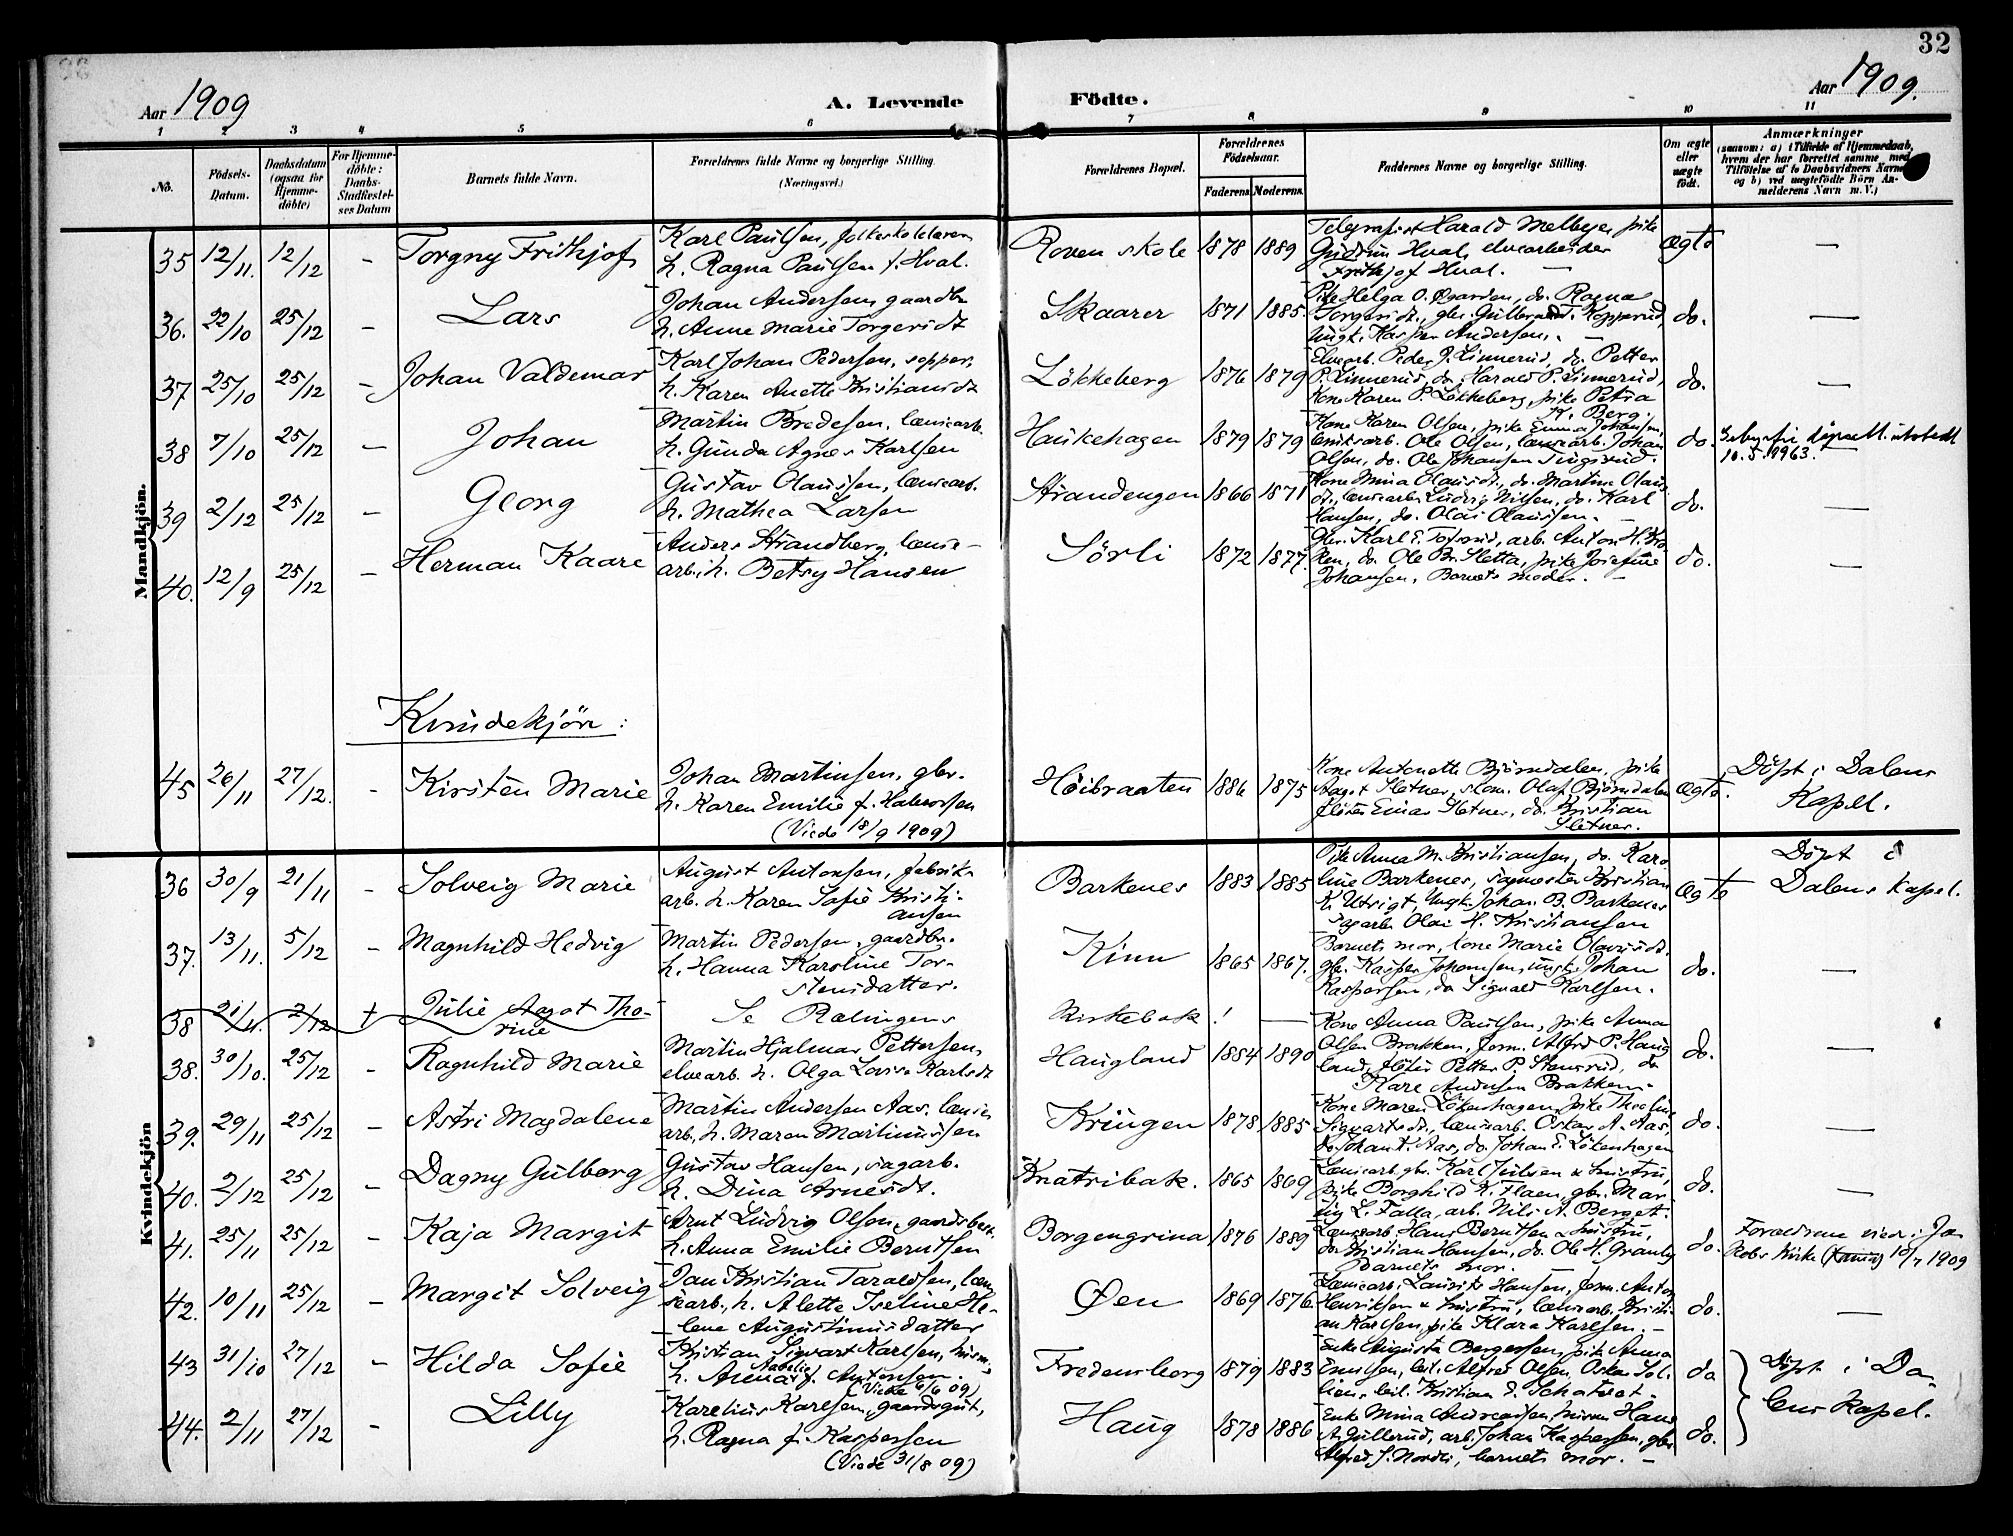 32
Aar 1909
A. Levende
Födte.
Aar 1909.
1 2 3 4 5 6 7 8 9 10 11
No.
Födsels-
Datum.
Daabsdatum
(ogsaa for
Hjemme-
döbte)
For Hjemme-
döbte:
Daabs-
Stadfæstel-
ses Datum
Barnets fulde Navn.
Forældrenes fulde Navne og borgerlige Stilling.
(Næringsvei.)
Forældrenes Bopæl.
Forældrenes
Födselsaar.
Faderens Moderens.
Faddernes Navne og borgerlige Stilling.
Om ægte
eller
uægte
födt.
Anmærkninger
(saasom: a) i Tilfælde af Hjemmedaab,
hvem der har forrettet samme med
Tilföielse af to Daabsvidners Navne
og b) ved uægtefödte Börn An-
melderens Navn m. V.)
Mandkjön.
35 12/11. 12/12 - Torgny Frithjof
Karl Paulsen, folkeskolelærer
h. Ragna Paulsen f. Hval.
Roven skole 1878 1889
Telegrafist Harald Melbye, pike
Gudrun Hval, elvearbeider
Frithjof Hval. -
ægte -
36. 22/10 25/12 - Lars
Johan Andersen, gaardbr.
h. Anne Marie Torgersdt
Skaarer 1871 1885.
Pike Helga O. Øgarden, do. Ragna
Torgersdt., gbr. Gulbrand T. Kopperud,
Ungk. Kasper Andersen. -
do. -
37 25/10 25/12 - Johan Valdemar
Karl Johan Pedersen,
h. Karen Anette Kristiansdt
Lökkeberg 1876 1879
Elvearb. Peder P. Linnerud, do. Petter
P. Linnerud, do. Harald P. Linnerud,
Kone Karen P. Lökkeberg, pike Petra
K. Berg.
do. -
38 7/10 25/12 - Johan
Martin Bredesen, lænsearb.
h. Gunda Agnes Karlsen
Haukehagen 1879 1879
Kone Karen Olsen, pike Emma Johansen,
lensearb. Ole Olsen, lænsearb. Johan
Olsen, do. Ole Johansen Tungsrud.
do.
utstedt
10.5.1963.
39 2/12 25/12 - Georg
Gustav Olaussen, lænsearb.
h. Mathea Larsen
Strandengen 1866 1871
Kone Mina Olausdt., do. Martine Olaus
dt., lænsearb. Ludvig Nilsen, do. Karl
Hansen, do. Olai Olaussen. -
do. -
40. 12/9 25/12 - Herman Kaare
Anders Strandberg, lænse-
arb., h. Betsy Hansen
Sörli 1872 1877.
Gbr. Karl E. Tofsrud, arb. Anton H.
do. Ole Br. Sletta, pike Josefine
Johansen, Barnets moder. -
do. -
Kvindekjön:
45 26/11 27/12. - Kirsten Marie
Johan Martinsen, gbr.
h. Karen Emilie f. Halvorsen
(Viede 18/9 1909)
Høibraaten 1886 1875
Kone Antonette Björndalen, pike
Aagot Sletner, Olaf Björndalen
fløter Einar Sletner, do. Kristian
Sletner.
Ægte.
Döpt i Dalens
Kapel.
Kvindekjön
36 30/9 21/11 - Solveig Marie
August Antonsen, fabrik-
arb. h. Karen Sofie Kristi-
ansen
Barkenes 1883 1885
Pike Anna M. Kristiansen, do. Karo
line Barkenes, sagmester Kristian
K. Utrigt, Ungk. Johan B. Barkenes
Sagarb. Olai H. Kristiansen
Ægte
Döpt i
Dalens Kapel.
37. 13/11. 5/12 - Magnhild Hedvig
Martin Pedersen, gaardbr.
h. Hanna Karoline Tor-
stensdatter.
Kinn 1865 1867.
Barnets mor, kone Marie Olavusdt.
gbr. Kasper Johansen, ungk. Johan
Kaspersen, do Sigvald Karlsen.
do. -
38 21/4. 2/12 + Julie Aagot Tho-
rine
Se Rælingens Kirkebok!
38. 30/10. 25/12 - Ragnhild Marie
Martin Hjalmar Pettersen,
elvearb. h. Olga Lovise Karlsdt
Haugland 1884 1890
Kone Anna Paulsen, pike Anna
Olsen Brakken, form. Alfred P. Haug
land, fløter Petter P. Stensrud, do
Kare Andersen Brakken. -
do. -
39. 29/11 25/12 - Astri Magdalene
Martin Andersen Aas, lænse
arb., h. Maren Martinussen
Kringen 1878 1885
Kone Maren Lökenhagen, pike Theoline
Sigvartsdt., lænsearb. Oskar A. Aas,
do. Johan T. Aas, do. Johan E. Lökenhagen
do. -
40. 2/12 25/12 - Dagny Gulborg
Gustav Hansen, sagarb.
h. Dina Arnesdt.
Knatribak. 1865 1869
Lænsearb. gbr. Karl Julsen & hustru,
pike Borghild K. Flaen, gbr. Mar-
L. Falla, arb. Nils A. Berget.
do. -
41. 25/11 25/12 - Kaja Margit
Arnt Ludvig Olsen, gaardsbest.
h. Anna Emilie Berntsen
Borgengrina 1876 1889
Lænsearb. Hans Berntsen & hustru,
do. Kristian Hansen, do. Ole H. Granly
Barnets mor. -
do.
Forældrene viede i Ja-
kobs Kirke 10/7 1909
42. 10/11 25/12 - Margit Solveig
Jan Kristian Taraldsen, læn-
searb., h. Alette Iseline He-
lene Augustinusdatter
Øen 1869 1876
Lænsearb. Laurits Hansen, form. Anton
Henriksen & hustru, lænsearb. Kristi-
an Karlsen, pike Klara Karlsen. -
do. -
43 31/10 27/12 - Hilda Sofie
Kristian Sigvart Karlsen,
h. Anna Nathalie f. Antonsen.
(Viede 6/6 09)
Fredensborg 1879 1883
Enke Augusta Bergersen, pike Anna
Emilsen, Alfred Olsen, Oskar Sol-
lien, Kristian d. Schatvet.
do
Döpt i Da-
lens Kapel.
44. 2/11 27/12 - Lilly
Karelius Karlsen, gaardsgut,
h. Ragna f. Kaspersen
(Viede 31/8 09)
Haug 1878 1886
Enke Mina Andreassen, Hans
A. Gullerud, arb. Johan Kaspersen, gbr.
Alfred S. Nordli, barnets mor. -
do.